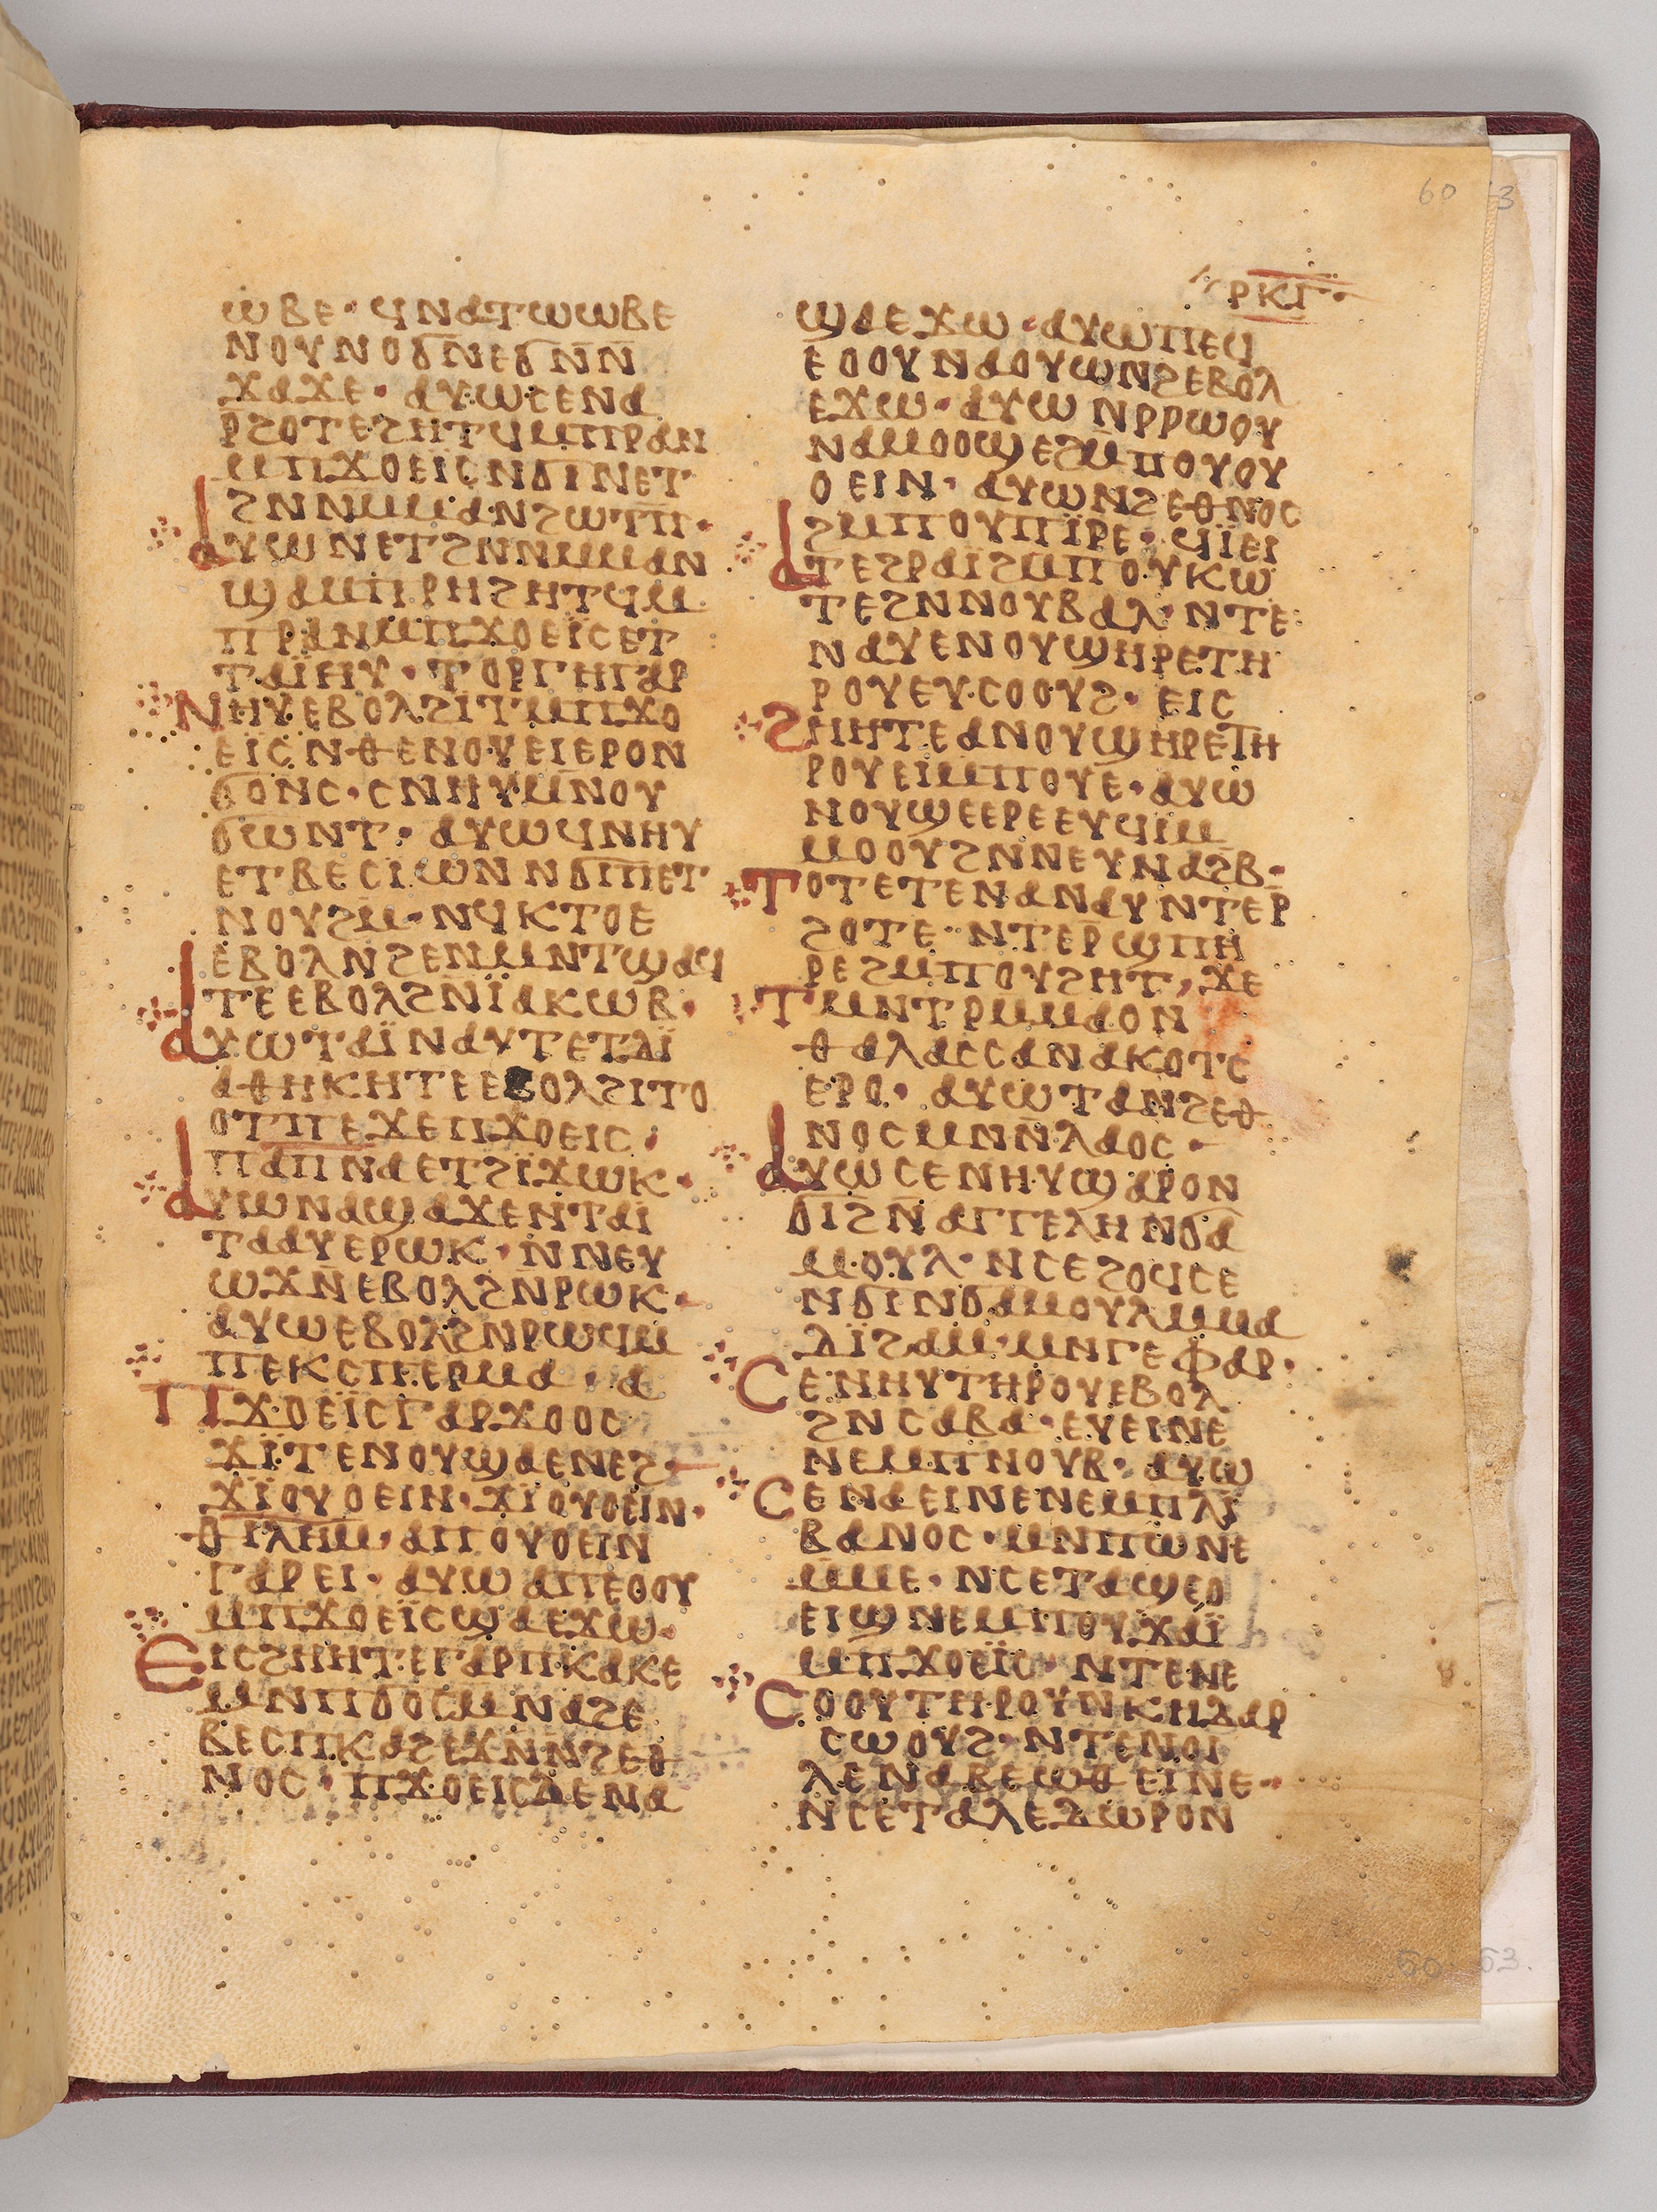 60
63
ⲣⲕⲅ
ⲱⲃⲉ· ϥⲛⲁⲧⲱⲱⲃⲉ
ⲛⲟⲩⲛⲟϭⲛⲉϭⲛⲛ
ϫⲁϫⲉ· ⲁⲩⲱⲥⲉⲛⲁ
ⲣϩⲟⲧⲉϩⲏⲧϥⲙⲡⲣⲁⲛ
ⲙⲡϫⲟⲉⲓⲥⲛϭⲓⲛⲉⲧ
ϩⲛⲛⲙⲙⲁⲛϩⲱⲧⲡ·
ⲁⲩⲱⲛⲉⲧϩⲛⲛⲙⲙⲁⲛ
ϣⲁⲙⲡⲣⲏϩⲏⲧϥⲙ
ⲡⲣⲁⲛⲙⲡϫⲟⲉⲓ̈ⲥⲉⲧ
ⲧⲁⲓ̈ⲏⲩ· ⲧⲟⲣⲅⲏⲅⲁⲣ
ⲛⲏⲩⲉⲃⲟⲗϩⲓⲧⲙⲡϫⲟ
ⲉⲓ̈ⲥⲛⲑⲉⲛⲟⲩⲉⲓⲉⲣⲟⲛ
ϭⲟⲛⲥ· ⲥⲛⲏⲩⲙⲛⲟⲩ
ϭⲱⲛⲧ· ⲁⲩⲱϥⲛⲏⲩ
ⲉⲧⲃⲉⲥⲓⲱⲛⲛϭⲓⲡⲉⲧ
ⲛⲟⲩϩⲙ· ⲛϥⲕⲧⲟⲉ
ⲉⲃⲟⲗⲛϩⲉⲛⲙⲛⲧϣⲁϥ
ⲧⲉⲉⲃⲟⲗϩⲛⲓ̈ⲁⲕⲱⲃ·
ⲁⲩⲱⲧⲁⲓ̈ⲛⲁⲩⲧⲉⲧⲇⲓ̈
ⲁⲑⲏⲕⲏⲧⲉⲉⲃⲟⲗϩⲓⲧⲟ
ⲟⲧⲡⲉϫⲉⲡϫⲟⲉⲓⲥ·
ⲡⲁⲡⲛⲁⲉⲧϩⲓ̈ϫⲱⲕ·
ⲁⲩⲱⲛⲁϣⲁϫⲉⲛⲧⲁⲓ
ⲧⲁⲁⲩⲉⲣⲱⲕ· ⲛⲛⲉⲩ
ⲱϫⲛⲉⲃⲟⲗϩⲛⲣⲱⲕ·
ⲁⲩⲱⲉⲃⲟⲗϩⲛⲣⲱϥⲙ
ⲡⲉⲕⲥⲡⲉⲣⲙⲁ· ⲁ
ⲡϫⲟⲉⲓ̈ⲥⲅⲁⲣϫⲟⲟⲥ
ϫⲓ̈ⲧⲉⲛⲟⲩϣⲁⲉⲛⲉϩ·
ϫⲓ̈ⲟⲩⲟⲉⲓⲛ· ϫⲓ̈ⲟⲩⲟⲉⲓⲛ·
ⲑⲓⲗⲏⲙ· ⲁⲡⲟⲩⲟⲉⲓⲛ
ⲅⲁⲣⲉⲓ· ⲁⲩⲱⲁⲡⲉⲟⲟⲩ
ⲙⲡϫⲟⲉⲓ̈ⲥϣⲁⲉϫⲱ·
ⲉⲓⲥϩⲏⲏⲧⲉⲅⲁⲣⲡⲕⲁⲕⲉ
ⲙⲛⲡϭⲟⲥⲙⲛⲁϩⲉ
ⲃⲉⲥⲡⲕⲁϩⲉϫⲛⲛϩⲉⲑ
ⲛⲟⲥ· ⲡϫⲟⲉⲓⲥⲇⲉⲛⲁ
ϣⲁⲉϫⲱ· ⲁⲩⲱⲡⲉϥ
ⲉⲟⲟⲩⲛⲁⲟⲩⲱⲛϩⲉⲃⲟⲗ
ⲉϫⲱ· ⲁⲩⲱⲛⲣⲣⲱⲟⲩ
ⲛⲁⲙⲟⲟϣⲉϩⲙⲡⲟⲩⲟⲩ
ⲟⲉⲓⲛ· ⲁⲩⲱⲛϩⲉⲑⲛⲟⲥ
ϩⲙⲡⲟⲩⲡⲓ̈ⲣⲉ· ϥⲓ̈ⲉⲓ
ⲁⲧⲉϩⲣⲁⲓϩⲙⲡⲟⲩⲕⲱ
ⲧⲉϩⲛⲛⲟⲩⲃⲁⲗ· ⲛⲧⲉ
ⲛⲁⲩⲉⲛⲟⲩϣⲏⲣⲉⲧⲏ
ⲣⲟⲩⲉⲩⲥⲟⲟⲩϩ· ⲉⲓⲥ
ϩⲏⲏⲧⲉⲁⲛⲟⲩϣⲏⲣⲉⲧⲏ
ⲣⲟⲩⲉⲓⲙⲡⲟⲩⲉ· ⲁⲩⲱ
ⲛⲟⲩϣⲉⲉⲣⲉⲉⲩϥⲓⲙ
ⲙⲟⲟⲩϩⲛⲛⲉⲩⲛⲁϩⲃ·
ⲧⲟⲧⲉⲧⲉⲛⲁⲛⲁⲩⲛⲧⲉⲣ
ϩⲟⲧⲉ· ⲛⲧⲉⲣϣⲡⲏ
ⲣⲉϩⲙⲡⲟⲩϩⲏⲧ, ϫⲉ
ⲧⲙⲛⲧⲣⲙⲙⲁⲟⲛ
ⲑⲁⲗⲁⲥⲥⲁⲛⲁⲕⲟⲧⲥ
ⲉⲣⲟ· ⲁⲩⲱⲧⲁⲛϩⲉⲑ
ⲛⲟⲥⲙⲛⲛⲗⲁⲟⲥ·
ⲁⲩⲱⲥⲉⲛⲏⲩϣⲁⲣⲟⲛ
ϭⲓϩⲛⲁⲅⲅⲉⲗⲏⲛϭⲁ
ⲙⲟⲩⲗ· ⲛⲥⲉϩⲟϥⲥⲉ
ⲛϭⲓⲛϭⲁⲙⲟⲩⲗⲙⲙⲁ
ⲇⲓ̈ϩⲁⲙ· ⲙⲛⲅⲉⲫⲁⲣ·
ⲥⲉⲛⲏⲩⲧⲏⲣⲟⲩⲉⲃⲟⲗ
ϩⲛⲥⲁⲃⲁ· ⲉⲩⲉⲓⲛⲉ
ⲛⲉⲙⲡⲛⲟⲩⲃ· ⲁⲩⲱ
ⲥⲉⲛⲁⲉⲓⲛⲉⲛⲉⲙⲡⲗⲓ̈
ⲃⲁⲛⲟⲥ· ⲙⲛⲡⲱⲛⲉ
ⲙⲙⲉ· ⲛⲥⲉⲧⲁϣⲉⲟ
ⲉⲓϣⲛⲉⲙⲡⲟⲩϫⲁⲓ̈
ⲙⲡϫⲟⲉⲓ̈ⲥ· ⲛⲧⲉⲛⲉ
ⲥⲟⲟⲩⲧⲏⲣⲟⲩⲛⲕⲏⲇⲁⲣ
ⲥⲱⲟⲩϩ· ⲛⲧⲉⲛⲟⲓ
ⲗⲉⲛⲁⲃⲉⲱⲑⲉⲓⲛⲉ·
ⲛⲥⲉⲧⲁⲗⲉⲇⲱⲣⲟⲛ
60
63.